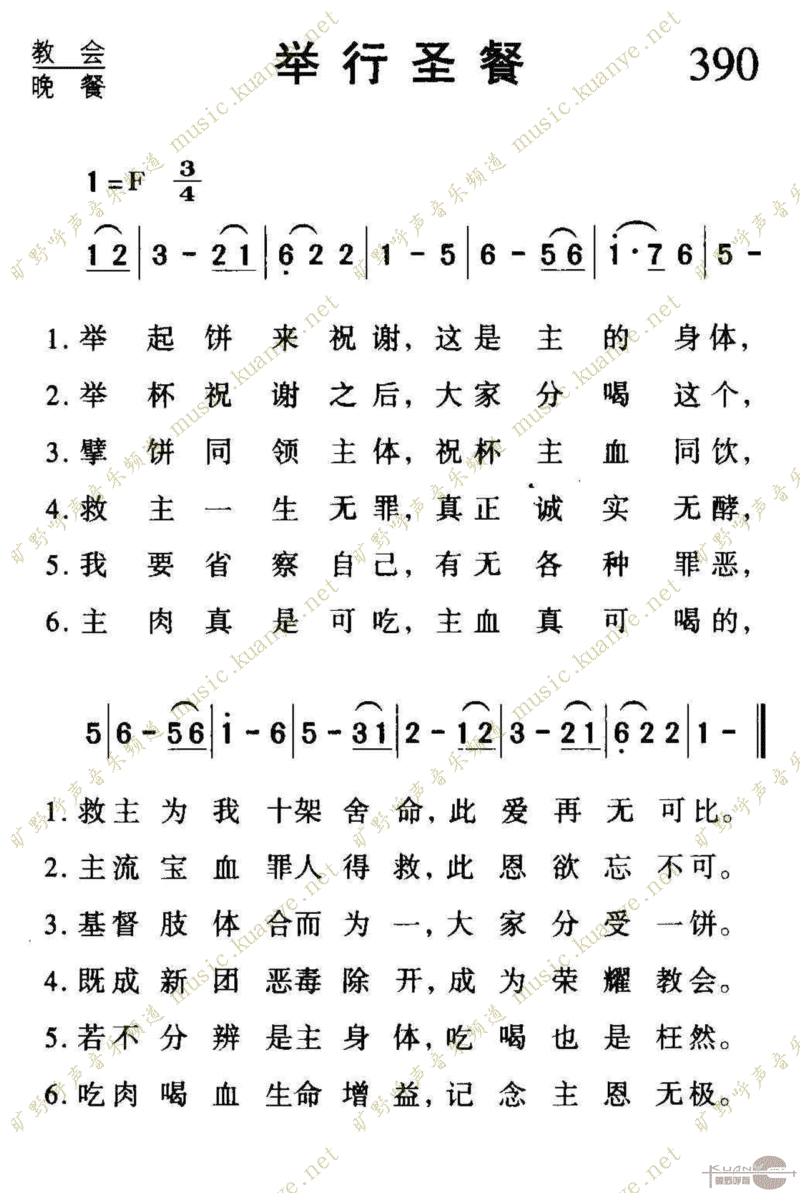 教会
晚餐
举行圣餐
390
1=F 3/4
12|3-21|6̣22|1-5|6-56|i·76|5-
1.举起饼来祝谢,这是主的身体,
2.举杯祝谢之后,大家分喝这个,
3.擘饼同领主体,祝杯主血同饮,
4.救主一生无罪,真正诚实无酵,
5.我要省察自己,有无各种罪恶,
6.主肉真是可吃,主血真可喝的,
5|6-56|i-6|5-31|2-12|3-21|6̣22|1-‖
1.救主为我十架舍命,此爱再无可比。
2.主流宝血罪人得救,此恩欲忘不可。
3.基督肢体合而为一,大家分受一饼。
4.既成新团恶毒除开,成为荣耀教会。
5.若不分辨是主身体,吃喝也是枉然。
6.吃肉喝血生命增益,记念主恩无极。
旷野呼声音乐频道 music.kuanye.net
KUANYE
旷野呼声